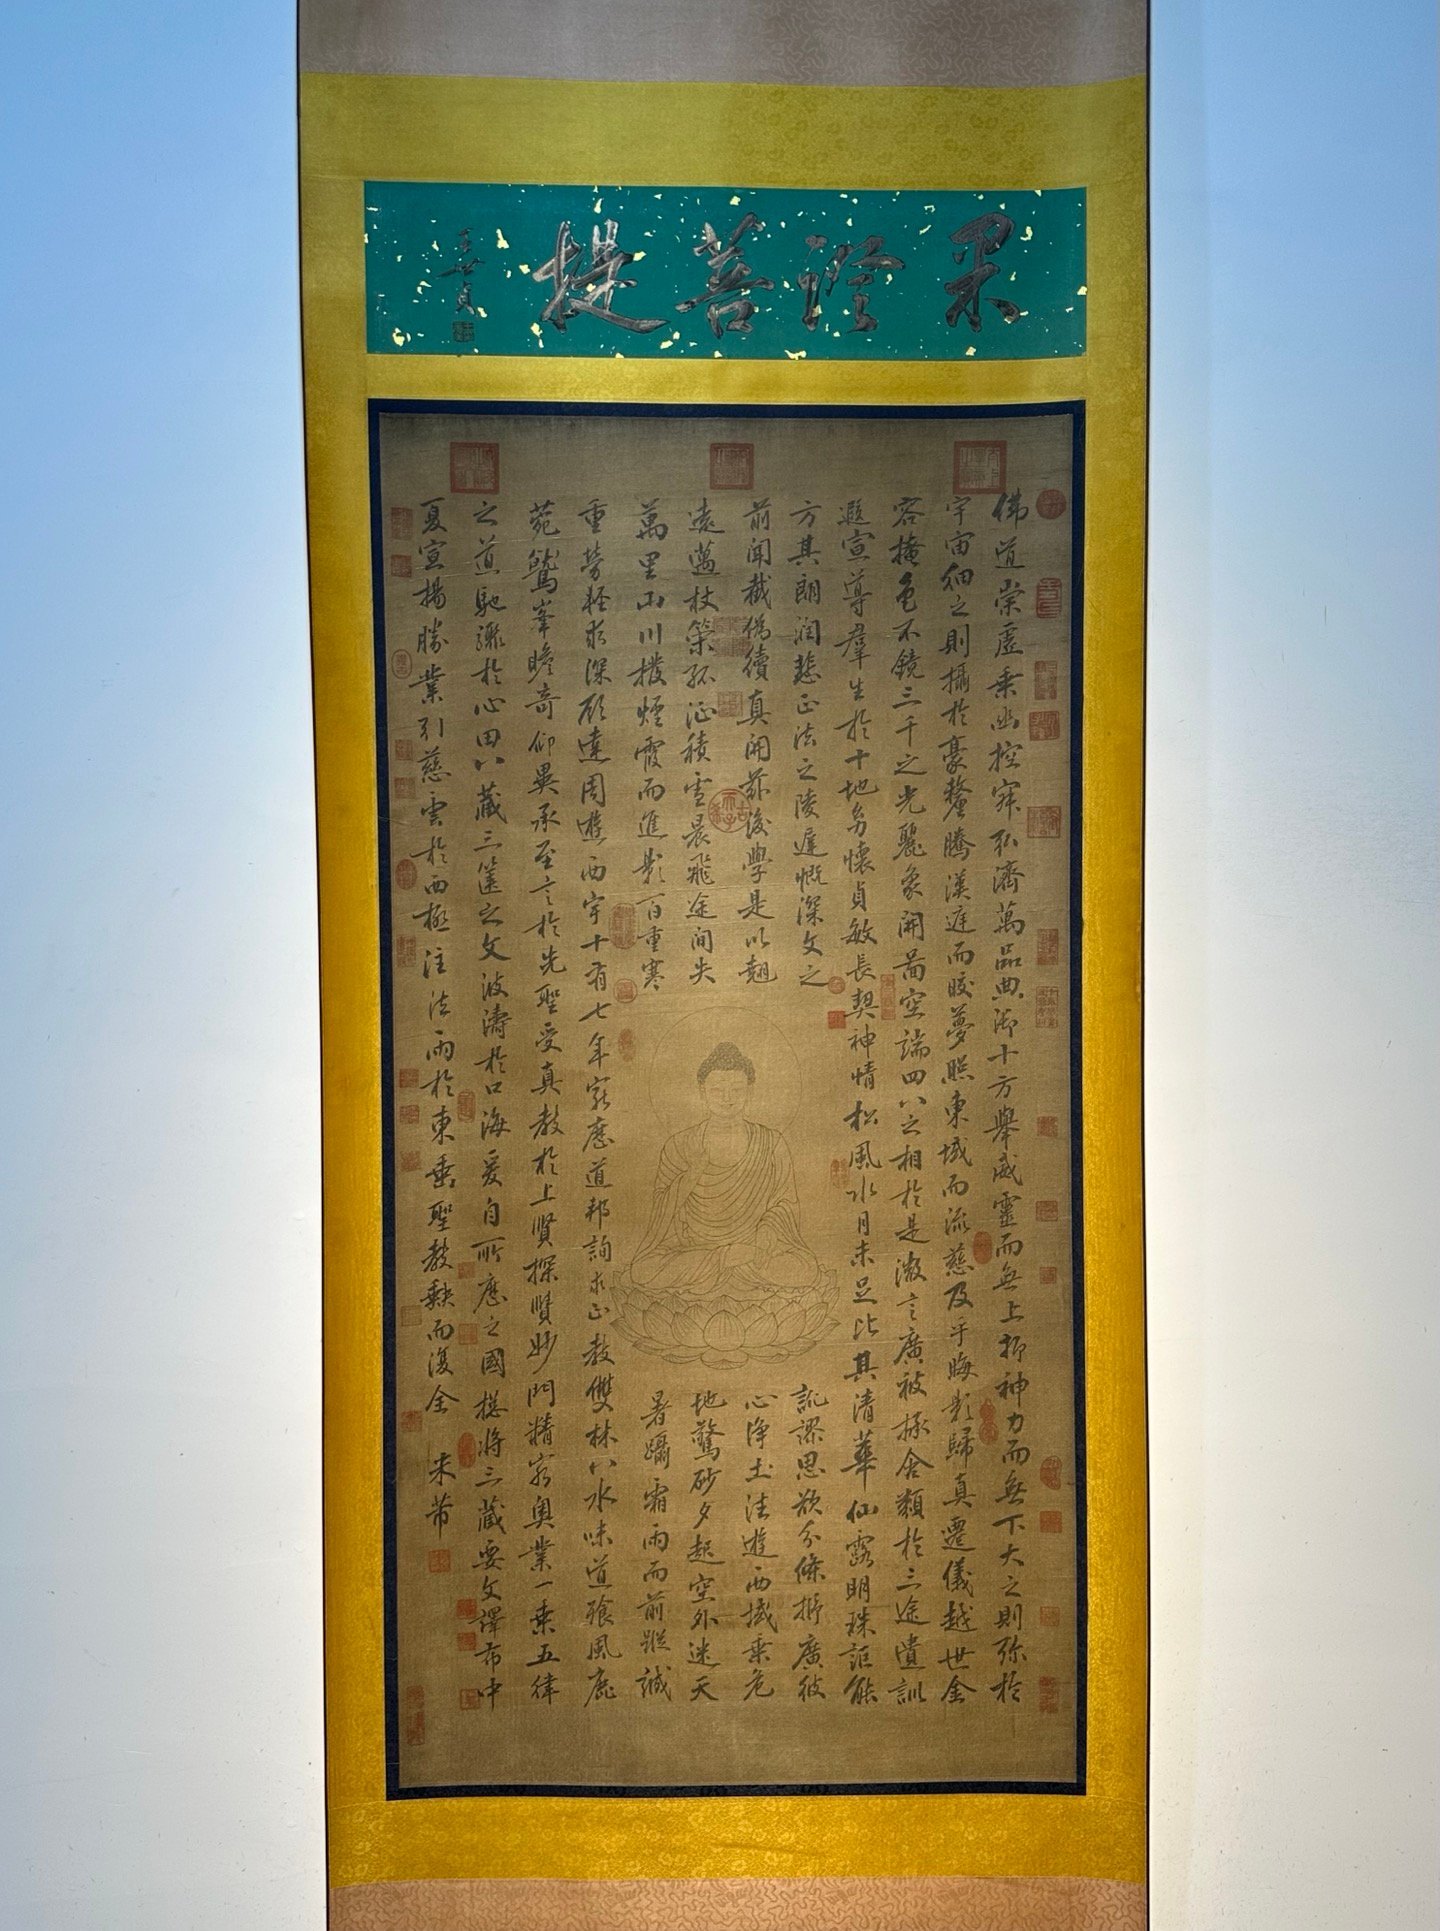 果證菩提
王世貞
佛道崇虛乘幽控寂弘濟萬品典御十方舉威靈而無上抑神力而無下大之則彌於
宇宙細之則攝於豪釐騰漢庭而皎夢照東域而流慈及乎晦影歸真遷儀越世金
容掩色不鏡三千之光麗象開圖空端四八之相於是微言廣被拯含類於三途遺訓
遐宣導羣生於十地幼懷貞敏長契神情松風水月未足比其清華仙露明珠詎能
方其朗潤悲正法之陵遲慨深文之訛謬思欲分條析廣彼
前聞截偽續真開茲後學是以翹心淨土往遊西域乘危
遠邁杖策孤征積雪晨飛途間失地驚砂夕起空外迷天
萬里山川撥煙霞而進影百重寒暑躡霜雨而前蹤誠
重勞輕求深願達周遊西宇十有七年窮歷道邦詢求正教雙林八水味道飡風鹿
菀鷲峯瞻奇仰異承至言於先聖受真教於上賢探賾妙門精窮奧業一乘五律
之道馳驟於心田八藏三篋之文波濤於口海爰自所歷之國總將三藏要文譯布中
夏宣揚勝業引慈雲於西極注法雨於東垂聖教缺而復全 米芾
古希天子